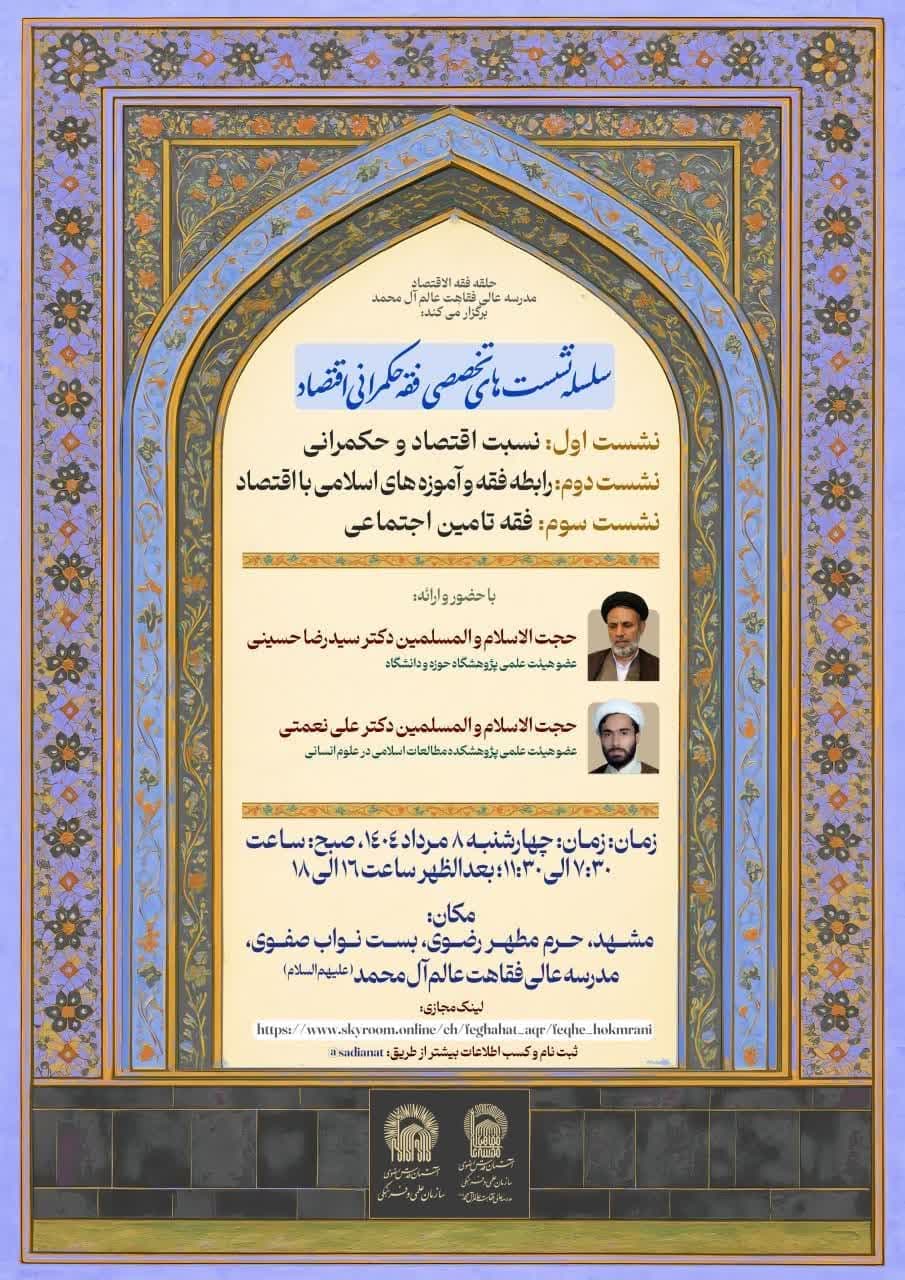 حلقه فقه الاقتصاد
مدرسه عالی فقاهت عالم آل محمد
برگزار می کند:
سلسله نشست های تخصصی فقه حکمرانی اقتصاد
نشست اول: نسبت اقتصاد و حکمرانی
نشست دوم: رابطه فقه و آموزه های اسلامی با اقتصاد
نشست سوم: فقه تامین اجتماعی
با حضور و ارائه:
حجت الاسلام و المسلمین دکتر سیدرضا حسینی
عضو هیئت علمی پژوهشگاه حوزه و دانشگاه
حجت الاسلام و المسلمین دکتر علی نعمتی
عضو هیئت علمی پژوهشکده مطالعات اسلامی در علوم انسانی
زمان: زمان: چهارشنبه ۸ مرداد ۱۴۰۴، صبح: ساعت
۷:۳۰ الی ۱۱:۳۰؛ بعدالظهر ساعت ۱۶ الی ۱۸
مکان:
مشهد، حرم مطهر رضوی، بست نواب صفوی،
مدرسه عالی فقاهت عالم آل محمد (علیهم السلام)
لینک مجازی:
https://www.skyroom.online/ch/feghahat_aqr/feqhe_hokmrani
ثبت نام و کسب اطلاعات بیشتر از طریق: @sadianat
آستان قدس رضوی
سازمان علمی و فرهنگی
آستان قدس رضوی
سازمان علمی و فرهنگی